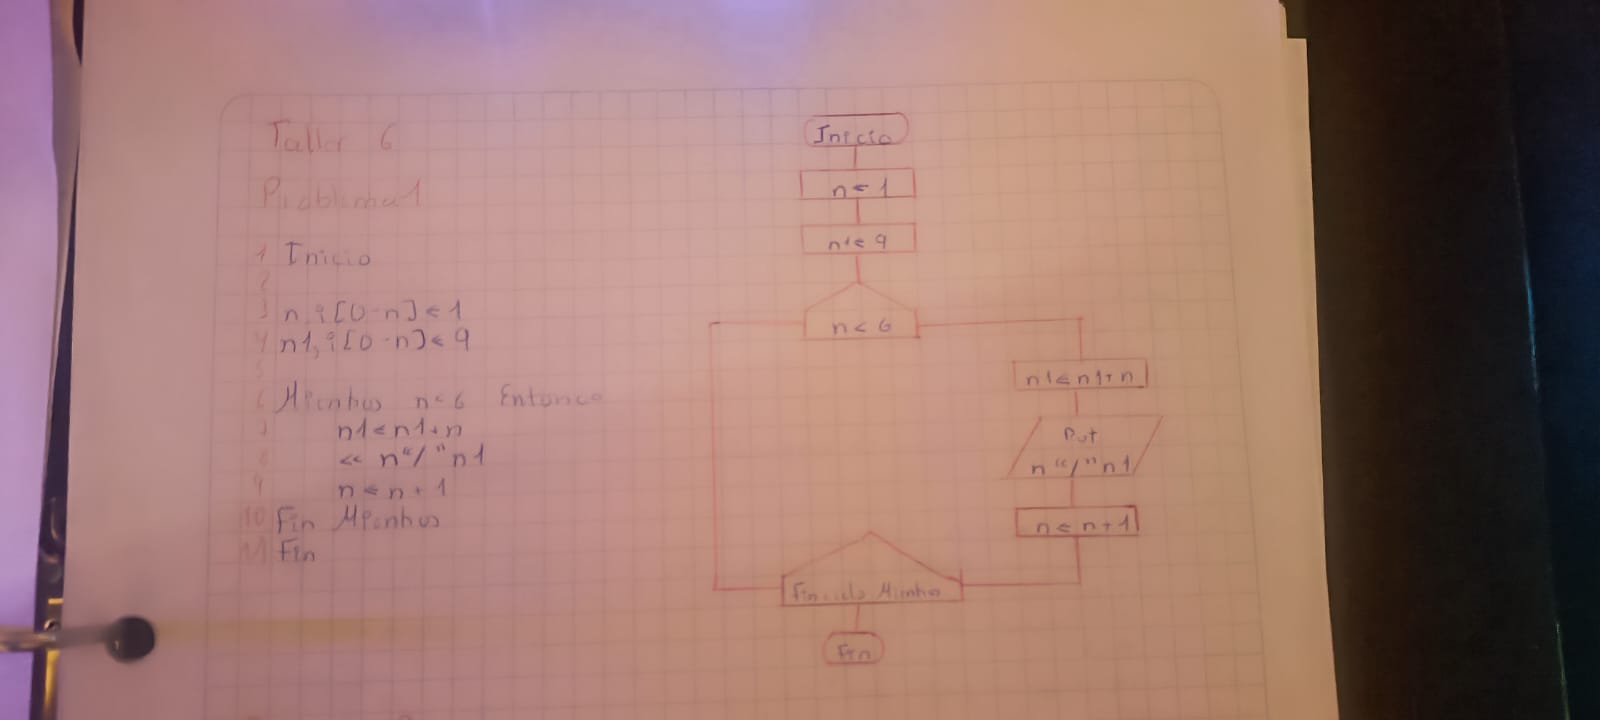 Taller 6
Problema 1
1 Inicio
2
3 n, i [0 - n] ← 1
4 n1, i [0 - n] ← 9
5
6 Mientras n < 6 Entonce
7 n1 ← n1 + n
8 << n "/" n1
9 n ← n + 1
10 Fin Mientras
11 Fin
Inicio
n ← 1
n1 ← 9
n < 6
n1 ← n1 + n
Put
n "/" n1
n ← n + 1
Fin ciclo Mientras
Fin